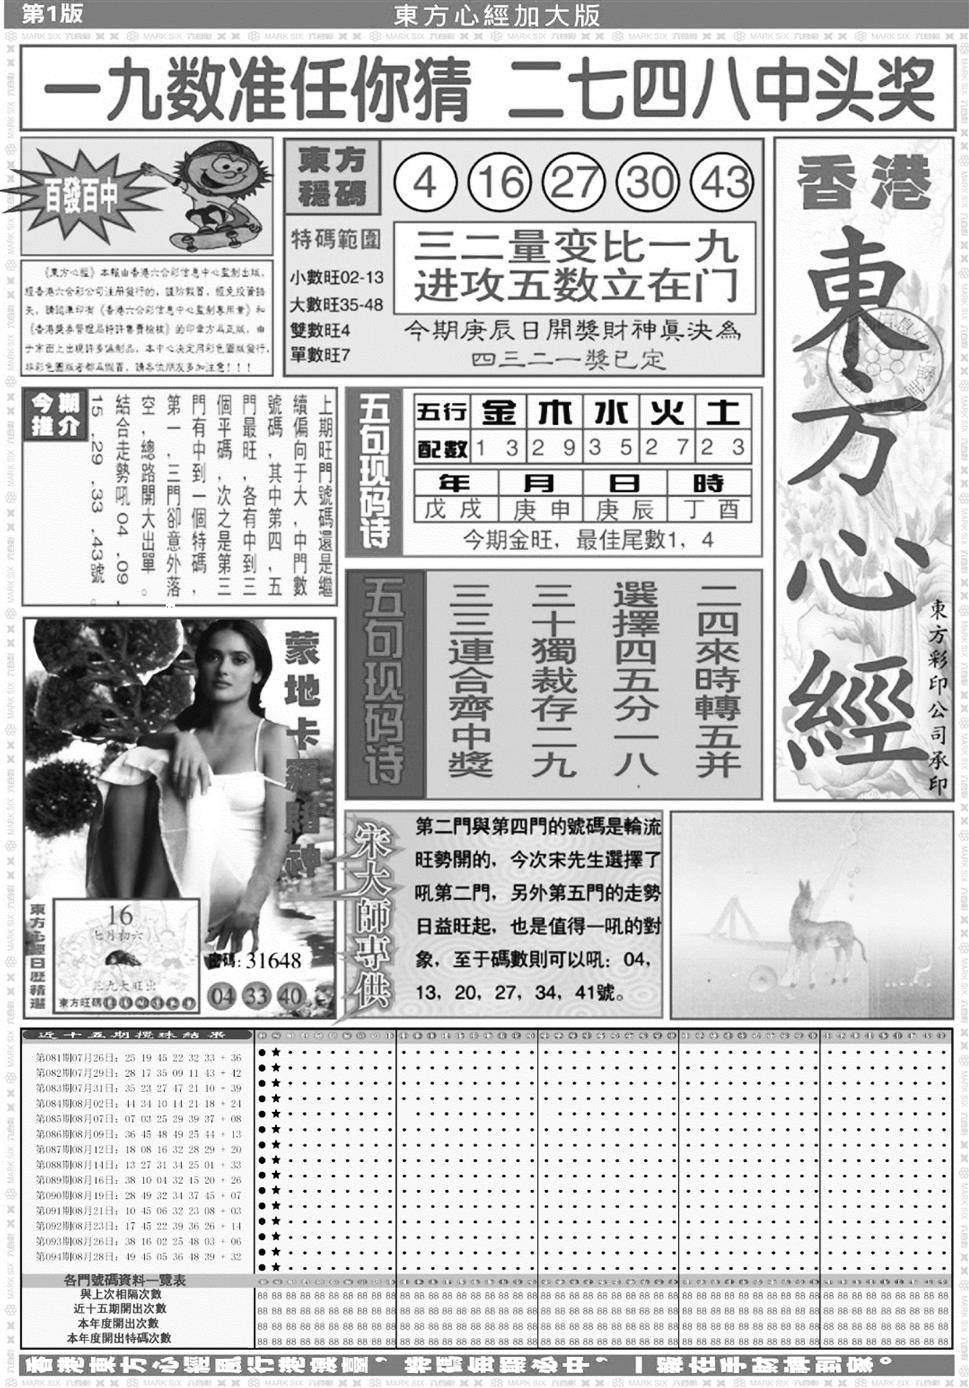 第1版
東方心經加大版
一九数准任你猜 二七四八中头奖
百發百中
東方穩碼
4 16 27 30 43
特碼範圍
小數旺02-13
大數旺35-48
雙數旺4
單數旺7
三二量变比一九
进攻五数立在门
今期庚辰日開獎財神眞決為
四三二一獎已定
香港
東方心經
東方彩印公司承印
《東方心經》本報由香港六合彩信息中心監制出版,
經香港六合彩公司注册發行的,
失,請認準印有《香港六合彩信息中心監制專用章》和
《香港獎券管理局特許售賣檢核》的印章方爲正版,由
于市面上出現許多僞制品,本中心决定用彩色圖版發行,
非彩色圖版者都爲假冒,請各位朋友多加注意!!!
今期推介
上期旺門號碼還是繼
續偏向于大,中門數
號碼,其中第四,五
門最旺,各有中到三
個平碼,次之是第三
門有中到一個特碼,
第一,三門卻意外落
空,總路開大出單。
結合走勢吼04.09.
15.29.33.43號。
五句现码诗
五行 金 木 水 火 土
配數 1 3 2 9 3 5 2 7 2 3
年 月 日 時
戊戌 庚申 庚辰 丁酉
今期金旺，最佳尾數1，4
五句现码诗
二四來時轉五并
選擇四五分一八
三十獨裁存二九
三三連合齊中獎
蒙地卡羅賭神
東方心經日歷精選
16
七月初六
三九大旺出
東方旺碼
密碼:31648
04 33 40
宋大師專供
第二門與第四門的號碼是輪流
旺勢開的，今次宋先生選擇了
吼第二門，另外第五門的走勢
日益旺起，也是值得一吼的對
象，至于碼數則可以吼：04，
13，20，27，34，41號。
近十五期攪珠結果
第081期07月26日: 25 19 45 22 32 33 + 36
第082期07月29日: 28 17 35 09 11 43 + 42
第083期07月31日: 35 23 27 47 21 10 + 39
第084期08月02日: 44 34 10 14 21 18 + 24
第085期08月07日: 07 03 25 29 39 37 + 08
第086期08月09日: 36 45 48 49 25 44 + 13
第087期08月12日: 18 08 16 32 28 29 + 20
第088期08月14日: 13 27 31 34 25 01 + 33
第089期08月16日: 38 10 04 32 15 20 + 26
第090期08月19日: 28 49 32 34 37 45 + 07
第091期08月21日: 10 45 06 32 23 08 + 03
第092期08月23日: 17 45 22 39 36 26 + 14
第093期08月26日: 38 16 02 25 48 03 + 06
第094期08月28日: 49 45 05 36 48 39 + 32
各門號碼資料一覽表
與上次相隔次數
近十五期開出次數
本年度開出次數
本年度開出特碼次數
香港東方心經風行港澳臺，特碼每期必中，一版在手財神到家。